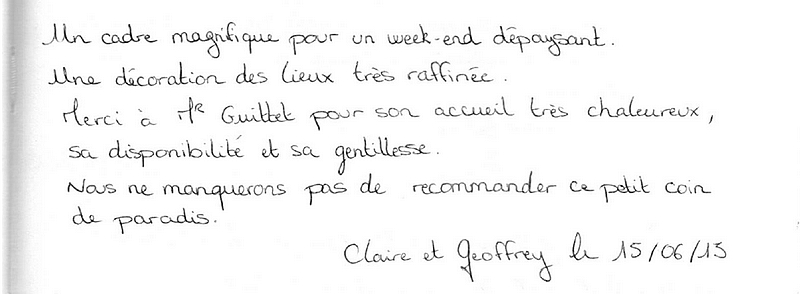 Un cadre magnifique pour un week-end dépaysant.
Une décoration des lieux très raffinée.
Merci à Mr Guittet pour son accueil très chaleureux,
sa disponibilité et sa gentillesse.
Nous ne manquerons pas de recommander ce petit coin
de paradis.
Claire et Geoffrey le 15/06/13